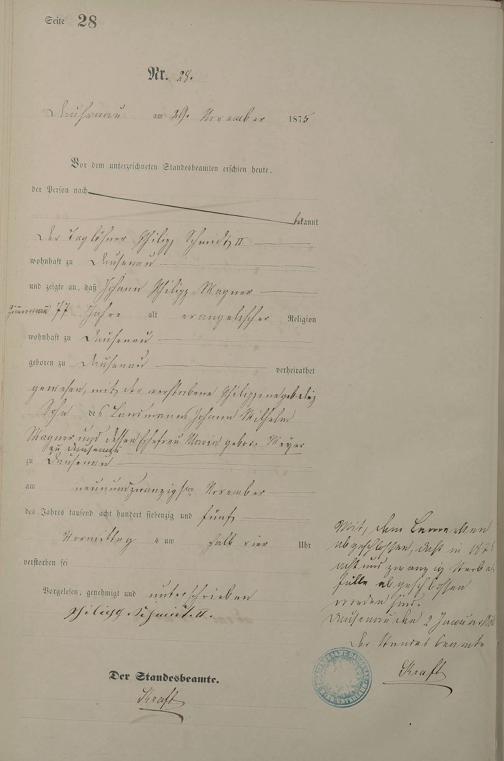 Seite 28
Nr. 28.
Dausenau am 29. November 1875
Vor dem unterzeichneten Standesbeamten erschien heute,
der Person nach
bekannt
Der Taglöhner Philipp Schmidt II
wohnhaft zu Dausenau
und zeigte an, daß Johann Philipp Wagner
77 Jahre alt evangelischer Religion
wohnhaft zu Dausenau
geboren zu Dausenau verheirathet
gewesen, mit der verstorbene Philippine geb.
Sohn des Landmanns Johann Wilhelm
Wagner und dessen Ehefrau Maria gebor. Meyer
zu Dausenau
zu Dausenau
am neunundzwanzigsten November
des Jahres tausend acht hundert siebenzig und fünf
Vormittag um halb vier Uhr
verstorben sei
Vorgelesen, genehmigt und unterschrieben
Philipp Schmidt II.
Der Standesbeamte.
Kraft
abgeschlossen, daß in 187
acht und zwanzig Sterbe
fälle abgeschlossen
worden sind.
Dausenau den 2 Januar
Der Standesbeamte
Kraft